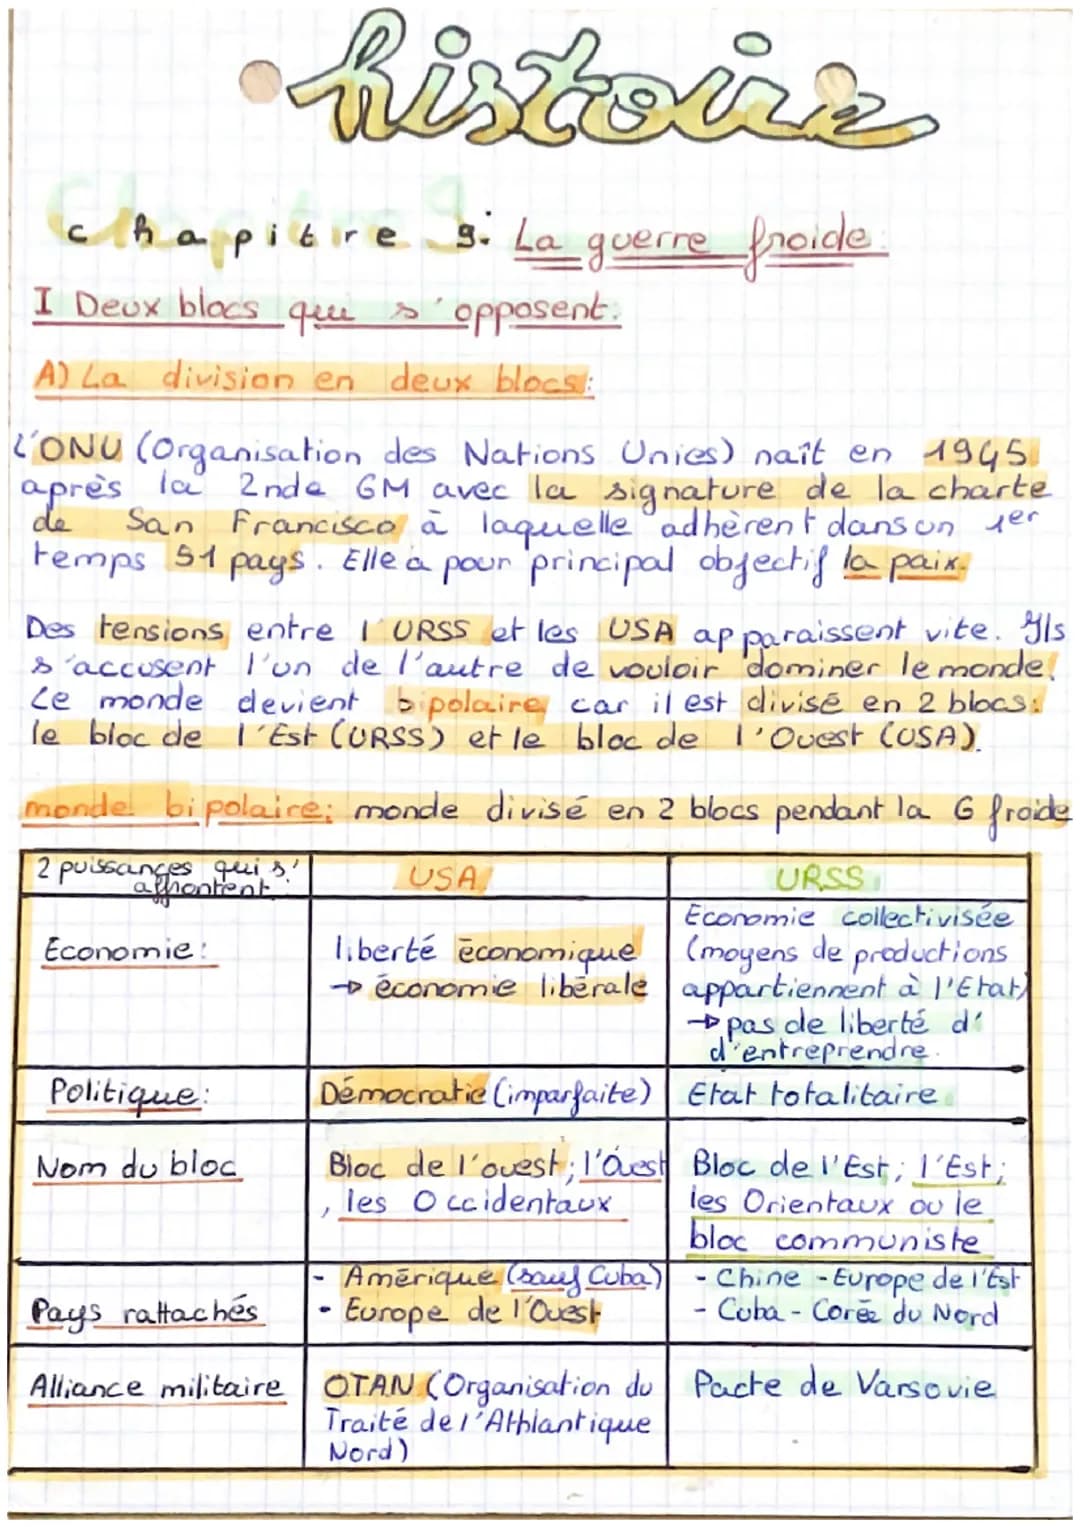 histoire
Chapitre 9: La guerre froide:
I Deux blocs qui s'opposent:
A) La division en deux blocs:
L'ONU (Organisation des Nations Unies) naît en 1945
après la 2nde GM avec la signature de la charte
de San Francisco à laquelle adhèrent dans un 1er
temps 51 pays. Elle a pour principal objectif la paix.
Des tensions entre l'URSS et les USA apparaissent vite. Ils
s'accusent l'un de l'autre de vouloir dominer le monde.
Le monde devient bipolaire car il est divisé en 2 blocs:
le bloc de l'Est (URSS) et le bloc de l'Ouest (USA).
monde bipolaire: monde divisé en 2 blocs pendant la G froide
2 puissances qui s'
affrontent
USA
URSS
Economie:
liberté économique
→ économie libérale
Economie collectivisée
(moyens de productions
appartiennent à l'Etat)
→ pas de liberté d'
d'entreprendre.
Politique:
Démocratie (imparfaite)
Etat totalitaire
Nom du bloc
Bloc de l'ouest; l'Ouest
, les Occidentaux
Bloc de l'Est; l'Est;
les Orientaux ou le
bloc communiste
Pays rattachés
- Amérique (sauf Cuba)
- Europe de l'Ouest
- Chine - Europe de l'Est
- Cuba - Corée du Nord
Alliance militaire
OTAN (Organisation du
Traité de l'Athlantique
Nord)
Pacte de Varsovie